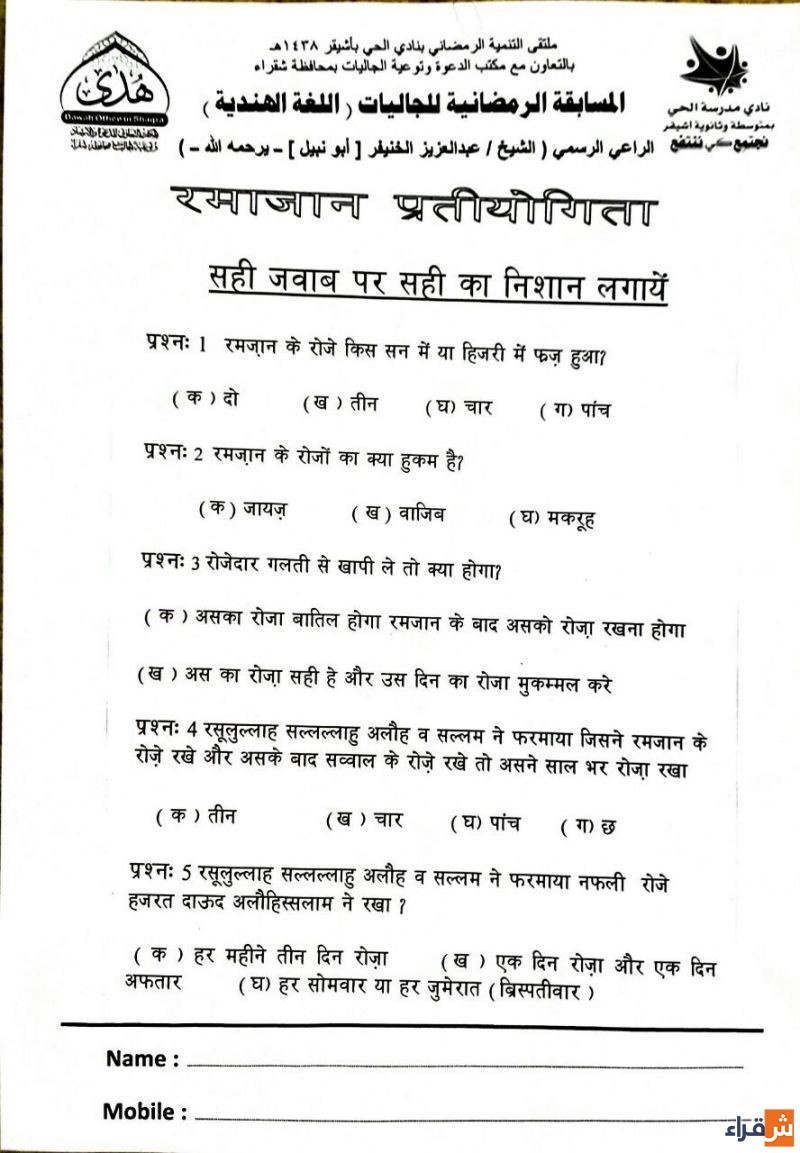 ملتقى التنمية الرمضاني بنادي الحي بأشيقر ١٤٣٨هـ
بالتعاون مع مكتب الدعوة وتوعية الجاليات بمحافظة شقراء
المسابقة الرمضانية للجاليات ( اللغة الهندية )
الراعي الرسمي ( الشيخ / عبدالعزيز الخنيفر [ أبو نبيل ] - يرحمه الله - )
هُدى
Dawah Office in Shaqra
نادي مدرسة الحي
بمتوسطة وثانوية أشيقر
نجتمع كي ننتفع
रमाजान प्रतीयोगिता
सही जवाब पर सही का निशान लगायें
प्रश्नः 1 रमजा़न के रोजे किस सन में या हिजरी में फज़ हुआ?
( क ) दो ( ख ) तीन (घ) चार ( ग) पांच
प्रश्नः 2 रमजा़न के रोजों का क्या हुकम है?
( क ) जायज़ ( ख ) वाजिब (घ) मकरूह
प्रश्नः 3 रोजेदार गलती से खापी ले तो क्या होगा?
( क ) असका रोजा बातिल होगा रमजान के बाद असको रोजा़ रखना होगा
(ख ) अस का रोजा़ सही हे और उस दिन का रोजा मुकम्मल करे
प्रश्नः 4 रसूलुल्लाह सल्लल्लाहु अलौह व सल्लम ने फरमाया जिसने रमजान के
रोज़े रखे और असके बाद सव्वाल के रोज़े रखे तो असने साल भर रोजा़ रखा
( क ) तीन ( ख ) चार (घ) पांच ( ग) छ
प्रश्नः 5 रसूलुल्लाह सल्लल्लाहु अलौह व सल्लम ने फरमाया नफली रोजे
हजरत दाऊद अलौहिस्सलाम ने रखा ?
( क ) हर महीने तीन दिन रोजा़ ( ख ) एक दिन रोजा़ और एक दिन
अफतार (घ) हर सोमवार या हर जुमेरात ( ब्रिस्पतीवार )
Name :
Mobile :
شقراء